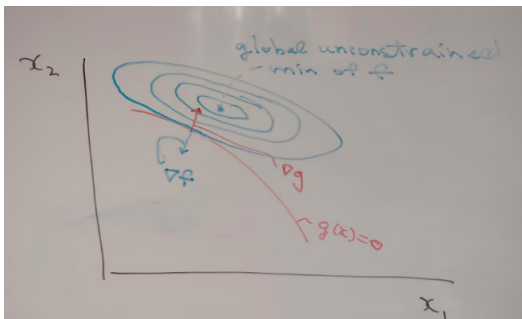 global unconstrained
-min of f
x₂
∇f
∇g
g(x)=0
x₁